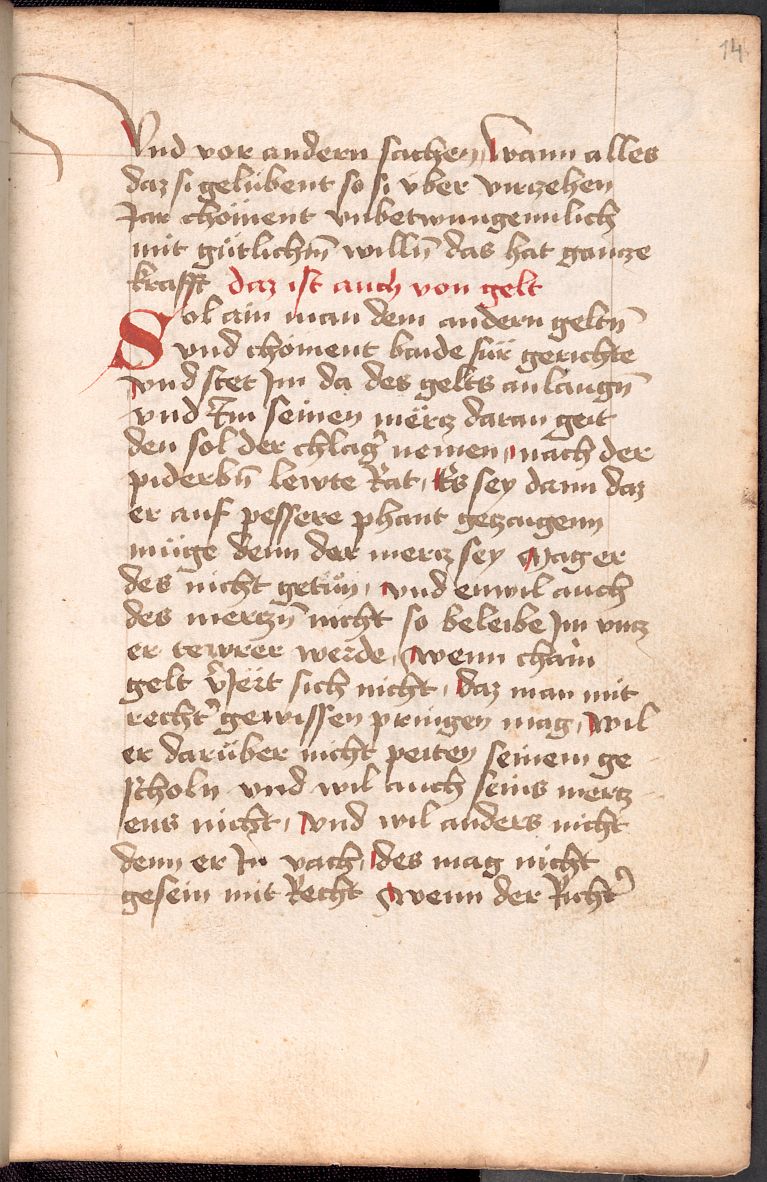 14
Vnd vor andern sachen, wann alles
daz si gelubent so si vber virczehen
Jar chöment vnbetwungennlich
mit gütlichen̄ willn̄ das hat gancze
krafft daz ist auch von gelt
Sol ain man dem andern geltn̄
vnd chöment baide für gerichte
vnd stet Im da des gelts anlaugn̄
vnd Im seinen mërcz daran geit
den sol der chlag᾽ nemen, nach der
piderbn̄ lewte Rat, Es sey dann daz
er auf pessere phant geczaigenn
müge denn der mercz sey Mag er
des nicht getün, vnd enwil auch
des merczn̄ nicht so beleibe Im vncz
er tewrer werde, wenn chain
gelt v᾽liert sich nicht, daz man mit
recht᾽ gewissen pringen mag, wil
er darüber nicht peiten seinem ge
scholn vnd wil auch seins mercz
ens nicht, vnd wil anders nicht
denn er In vach, des mag nicht
gesein mit Recht wenn der Richt᾽